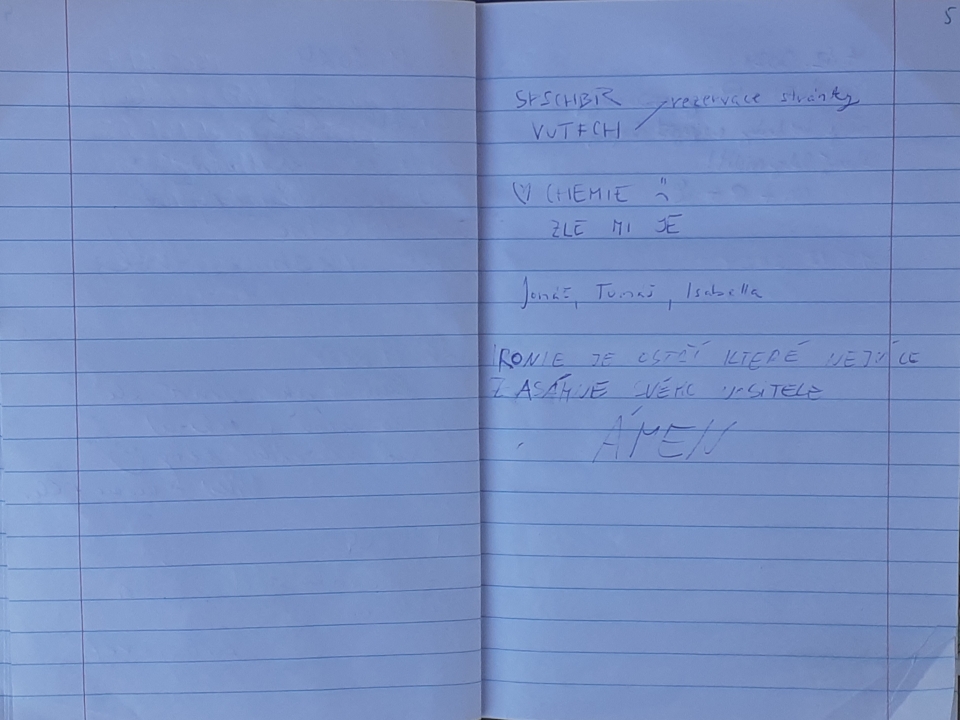 5
SPSCHBR
rezervace stránky
VUTFCH
♡ CHEMIE
ZLE MI JE
Jonáš, Tomáš, Isabella
IRONIE JE OSTŘÍ KTERÉ NEJVÍCE
ZASÁHNE SVÉHO NOSITELE
ÁMEN